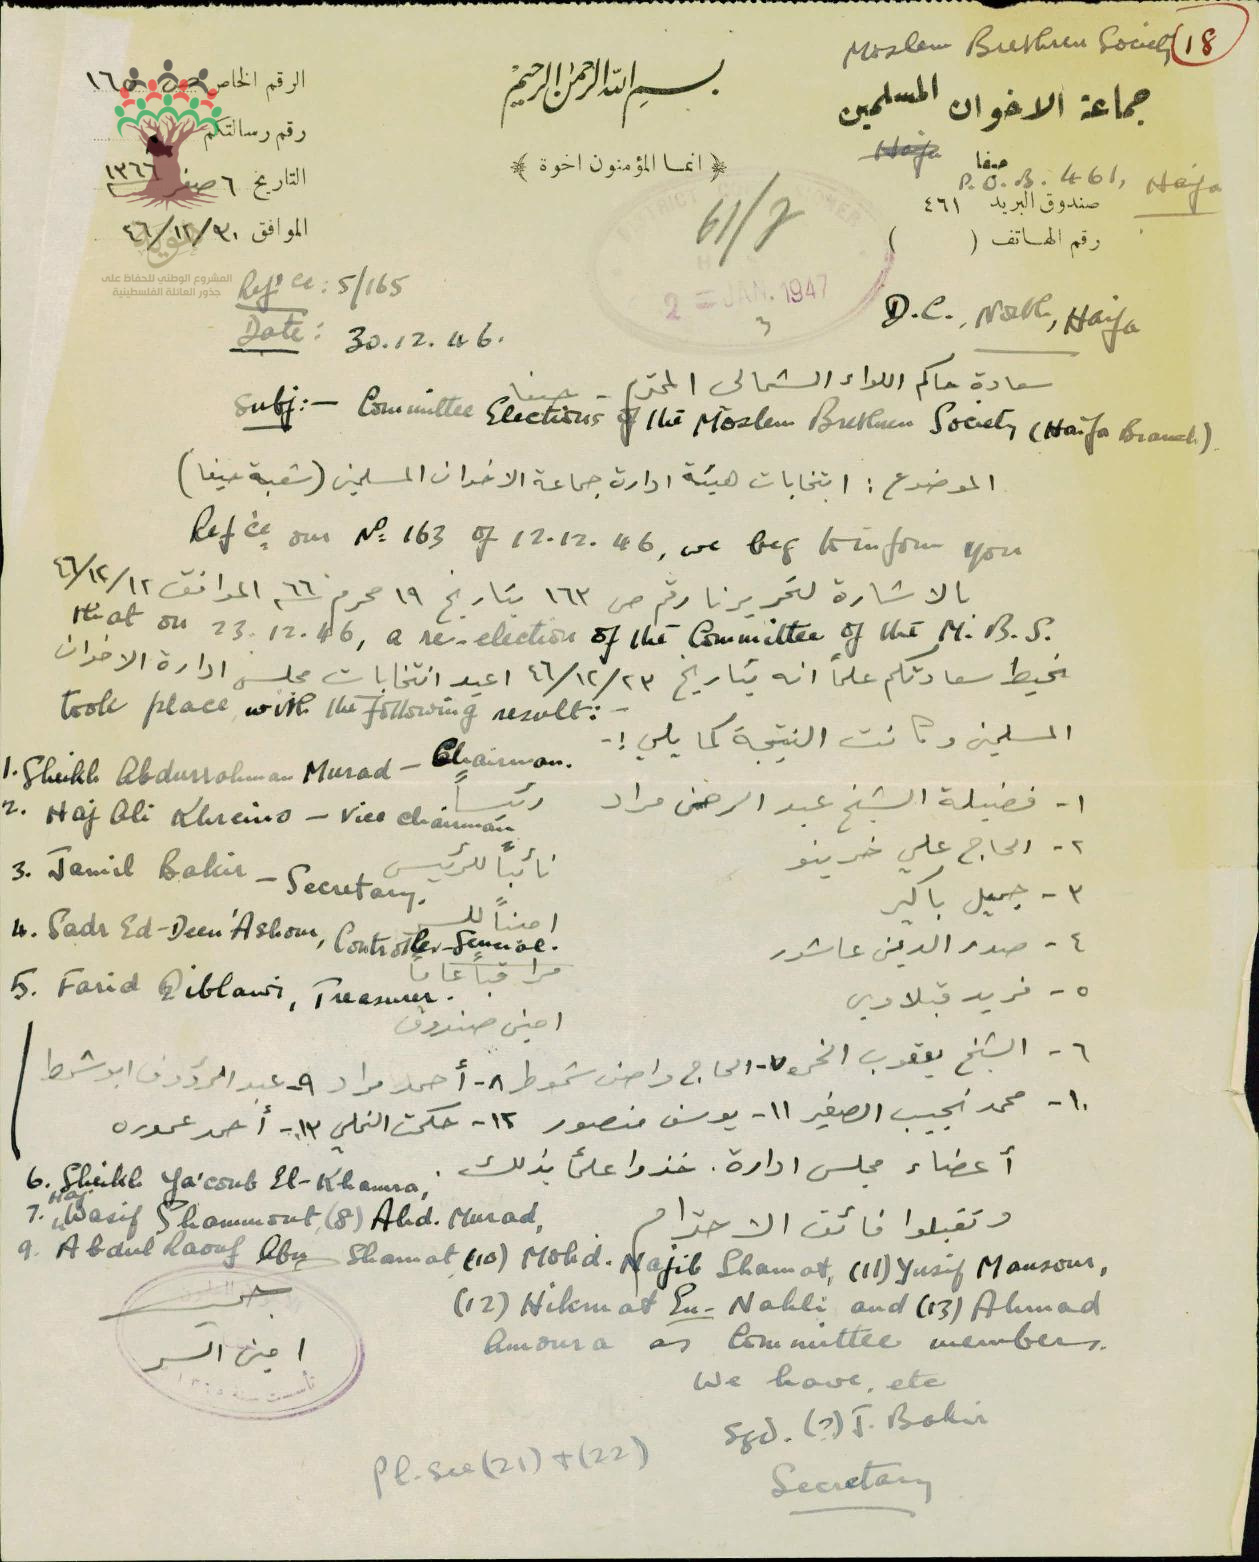 Moslem Brethren Society 18
جماعة الاخوان المسلمين
بسم الله الرحمن الرحيم
﴿ انما المؤمنون اخوة ﴾
الرقم الخاص ١٦٥
رقم رسالتكم
التاريخ ٦ صفر ١٣٦٦
الموافق ٣٠/١٢/٤٦
Haifa
حيفا
P.O.B. 461, Haifa
صندوق البريد ٤٦١
رقم الهاتف ( )
61/7
2 = JAN. 1947
المشروع الوطني للحفاظ على
جذور العائلة الفلسطينية
Ref'ce: 5/165
Date: 30.12.46.
D.C., North, Haifa
سعادة حاكم اللواء الشمالي المحترم - حيفا
Subj:- Committee Elections of the Moslem Brethren Society (Haifa Branch).
الموضوع : انتخابات هيئة ادارة جماعة الاخوان المسلمين (شعبة حيفا)
Ref'ce our No 163 of 12.12.46, we beg to inform you
بالاشارة لتحريرنا رقم ص ١٦٣ بتاريخ ١٩ محرم ٦٦ الموافق ١٢/١٢/٤٦
that on 23.12.46, a re-election of the Committee of the M.B.S.
نحيط سعادتكم علماً انه بتاريخ ٢٣/١٢/٤٦ اعيد انتخابات مجلس ادارة الاخوان
took place with the following result:-
المسلمين وكانت النتيجة كما يلي :-
1. Sheikh Abdurrahman Murad - Chairman.
١- فضيلة الشيخ عبد الرحمن مراد رئيساً
2. Haj Ali Khreino - Vice chairman
٢- الحاج علي خرينو نائباً للرئيس
3. Jamil Bakir - Secretary.
٣- جميل باكير اميناً للسر
4. Sadr Ed-Deen 'Ashour, Controller-General.
٤- صدر الدين عاشور مراقباً عاماً
5. Farid Qiblawi, Treasurer.
٥- فريد قبلاوي امين صندوق
٦- الشيخ يعقوب الخمره ٧- الحاج واصف شموط ٨- أحمد مراد ٩- عبد الرؤوف ابو شمط
١٠- محمد نجيب الصغير ١١- يوسف منصور ١٢- حكمت النملي ١٣- أحمد عموره
أعضاء مجلس ادارة. خذوا علماً بذلك.
6. Sheikh Ya'coub El-Khamra,
7. Haj Wasif Shammout, (8) Ahd. Murad,
وتقبلوا فائق الاحترام
9. Abdul Raouf Abu Shamat (10) Mohd. Najib Shamat, (11) Yusif Mansour,
(12) Hikmat En-Nahli and (13) Ahmad
Amoura as Committee members.
امين السر
We have, etc
Sgd. (?) J. Bakir
Secretary
Pl. see (21) + (22)